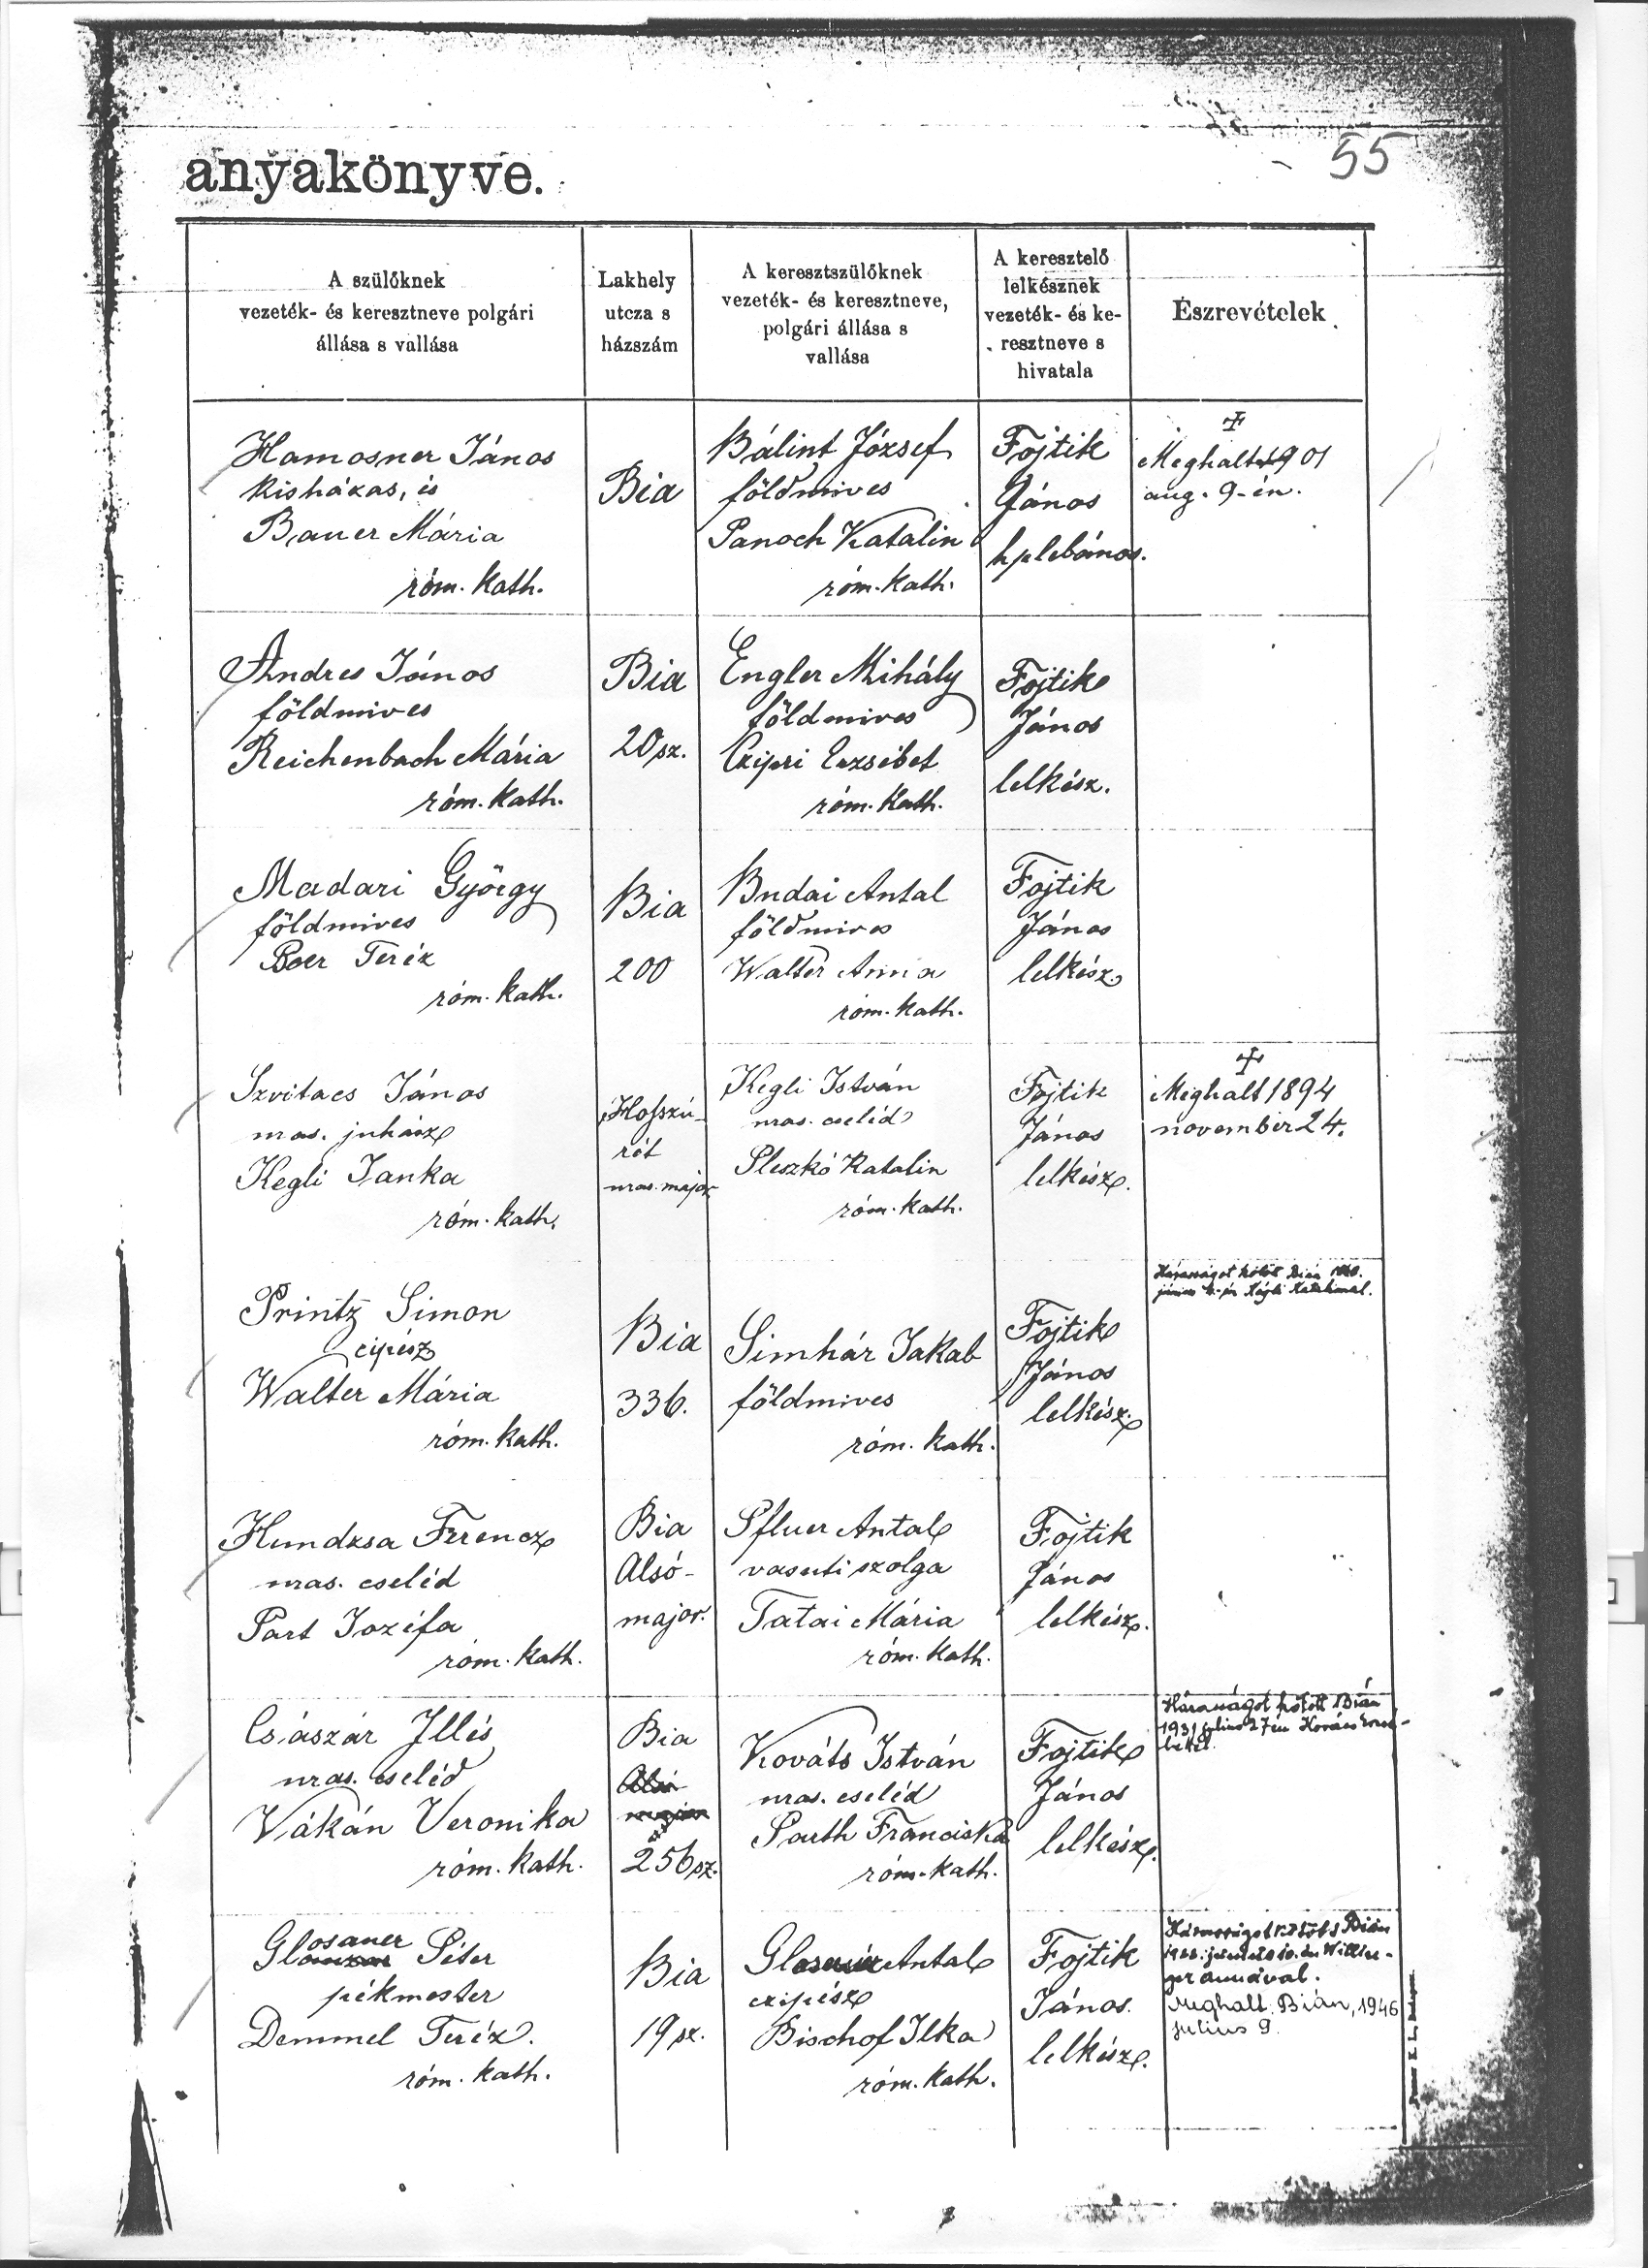 anyakönyve.
55
A szülőknek
vezeték- és keresztneve polgári
állása s vallása
Lakhely
utcza s
házszám
A keresztszülőknek
vezeték- és keresztneve,
polgári állása s
vallása
A keresztelő
lelkésznek
vezeték- és ke-
resztneve s
hivatala
Észrevételek
Hamosner János
kisházas, és
Bauer Mária
róm. kath.
Bia
Bálint József
földmives
Panoch Katalin
róm. kath.
Fojtik
János
hplebános.
Meghalt 1901
aug. 9-én.
Andres János
földmives
Reichenbach Mária
róm. kath.
Bia
20 sz.
Engler Mihály
földmives
Czipri Erzsébet
róm. kath.
Fojtik
János
lelkész.
Madari György
földmives
Boer Teréz
róm. kath.
Bia
200
Budai Antal
földmives
Walter Anna
róm. kath.
Fojtik
János
lelkész
Szvitacs János
uras. juhász
Kegli Janka
róm. kath.
Hosszú-
rét
uras. major
Kegli István
uras. cseléd
Pleszkó Katalin
róm. kath.
Fojtik
János
lelkész.
Meghalt 1894
november 24.
Printz Simon
cipész
Walter Mária
róm. kath.
Bia
336.
Simhár Jakab
földmives
róm. kath.
Fojtik
János
lelkész.
Házasságot kötött Bián
Kégli Katalinnal.
Hundzsa Ferencz
uras. cseléd
Part Jozéfa
róm. kath.
Bia
Alsó-
major.
Pfluer Antal
vasuti szolga
Tatai Mária
róm. kath.
Fojtik
János
lelkész.
Császár Illés
uras. cseléd
Vákán Veronika
róm. kath.
Bia
256 sz.
Kováts István
uras. cseléd
Parth Franciska
róm. kath.
Fojtik
János
lelkész.
Házasságot kötött Bián
1931 julius 27én Kovács Erzsé-
bettel.
Glosauer Péter
pékmester
Demmel Teréz.
róm. kath.
Bia
19 sz.
Antal
czipész
Bischof Ilka
róm. kath.
Fojtik
János.
lelkész.
Házasságot kötött Bián
Willin-
ger Annával.
Meghalt. Bián, 1946
julius 9.